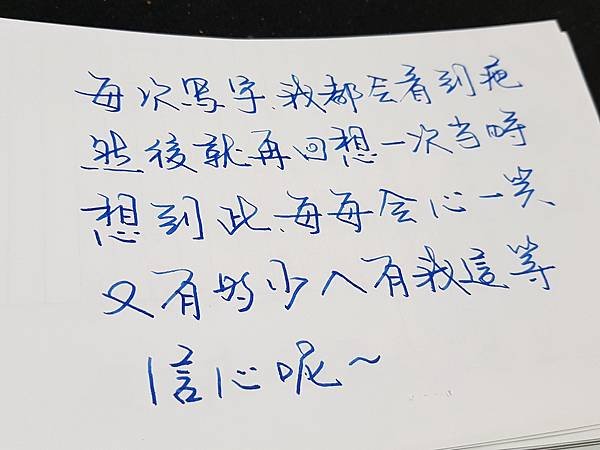 每次寫字,我都会看到疤
然後就再回想一次当時
想到此,每每会心一笑
又有多少人有我這等
信心呢~